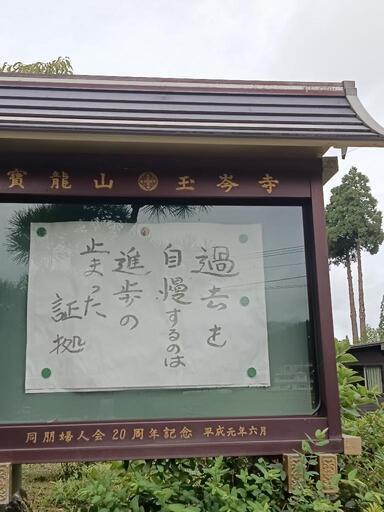 寳龍山 玉岑寺
過去を
自慢するのは
進歩の
止まった
証拠
同朋婦人会20周年記念 平成元年六月